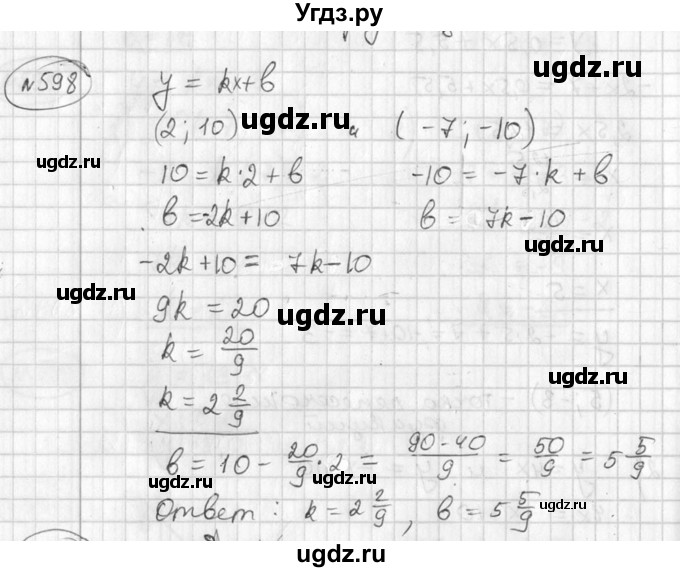 Угдз.ру
№598
y = kx+b
(2; 10) и (-7; -10)
10 = k·2 + b -10 = -7·k + b
b = -2k+10 b = 7k-10
-2k+10 = 7k-10
9k = 20
k = 20/9
k = 2 2/9
b = 10 - 20/9·2 = 90-40/9 = 50/9 = 5 5/9
Ответ: k = 2 2/9, b = 5 5/9
ugdz.ru
ugdz.ru
ugdz.ru
ugdz.ru
ugdz.ru
ugdz.ru
ugdz.ru
ugdz.ru
ugdz.ru
ugdz.ru
ugdz.ru
ugdz.ru